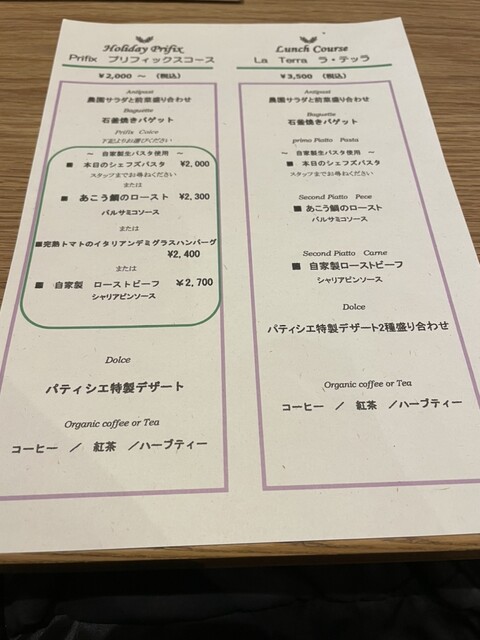 Holiday Prifix
Prifix プリフィックスコース
￥2,000 ～ (税込)
Antipast
農園サラダと前菜盛り合わせ
Baguette
石釜焼きバゲット
Prifix Coice
下記よりお選びください
～ 自家製生パスタ使用 ～
■ 本日のシェフズパスタ ¥2,000
スタッフまでお尋ねください
または
■ あこう鯛のロースト ¥2,300
バルサミコソース
または
■完熟トマトのイタリアンデミグラスハンバーグ
¥2,400
または
■ 自家製 ローストビーフ ￥2,700
シャリアピンソース
Dolce
パティシエ特製デザート
Organic coffee or Tea
コーヒー ／ 紅茶 ／ハーブティー
Lunch Course
La Terra ラ・テッラ
￥3,500 (税込)
Antipast
農園サラダと前菜盛り合わせ
Baguette
石釜焼きバゲット
primo Piatto Pasta
～ 自家製生パスタ使用 ～
■ 本日のシェフズパスタ
スタッフまでお尋ねください
Second Piatto Pece
■ あこう鯛のロースト
バルサミコソース
Second Piatto Carne
■ 自家製ローストビーフ
シャリアピンソース
Dolce
パティシエ特製デザート2種盛り合わせ
Organic coffee or Tea
コーヒー ／ 紅茶 ／ハーブティー